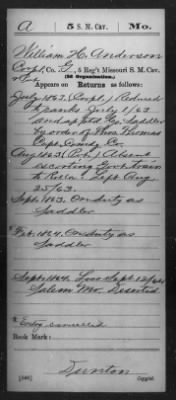 A 5 S. M. Cav. Mo.
William H. Anderson
Corpl, Co. E, 5 Reg't Missouri S. M. Cav.
(3d Organization.)
Appears on Returns as follows:
July 1863, (Corpl.) Reduced
to ranks July 1/63
and apptd Co. Saddler
by order of Thomas
Capt. Comdg Co.
Aug 1863 Absent
escorting Govt train
to Rolla Sept Aug.
25/63.
Sept. 1863. On duty as
Saddler
* Feb. 1864. On duty as
Saddler
Sept. 1864. Loss Sept 12/64
Salem Mo. Deserted
* Entry cancelled
Book Mark:
Dunton
(546) Copyist.